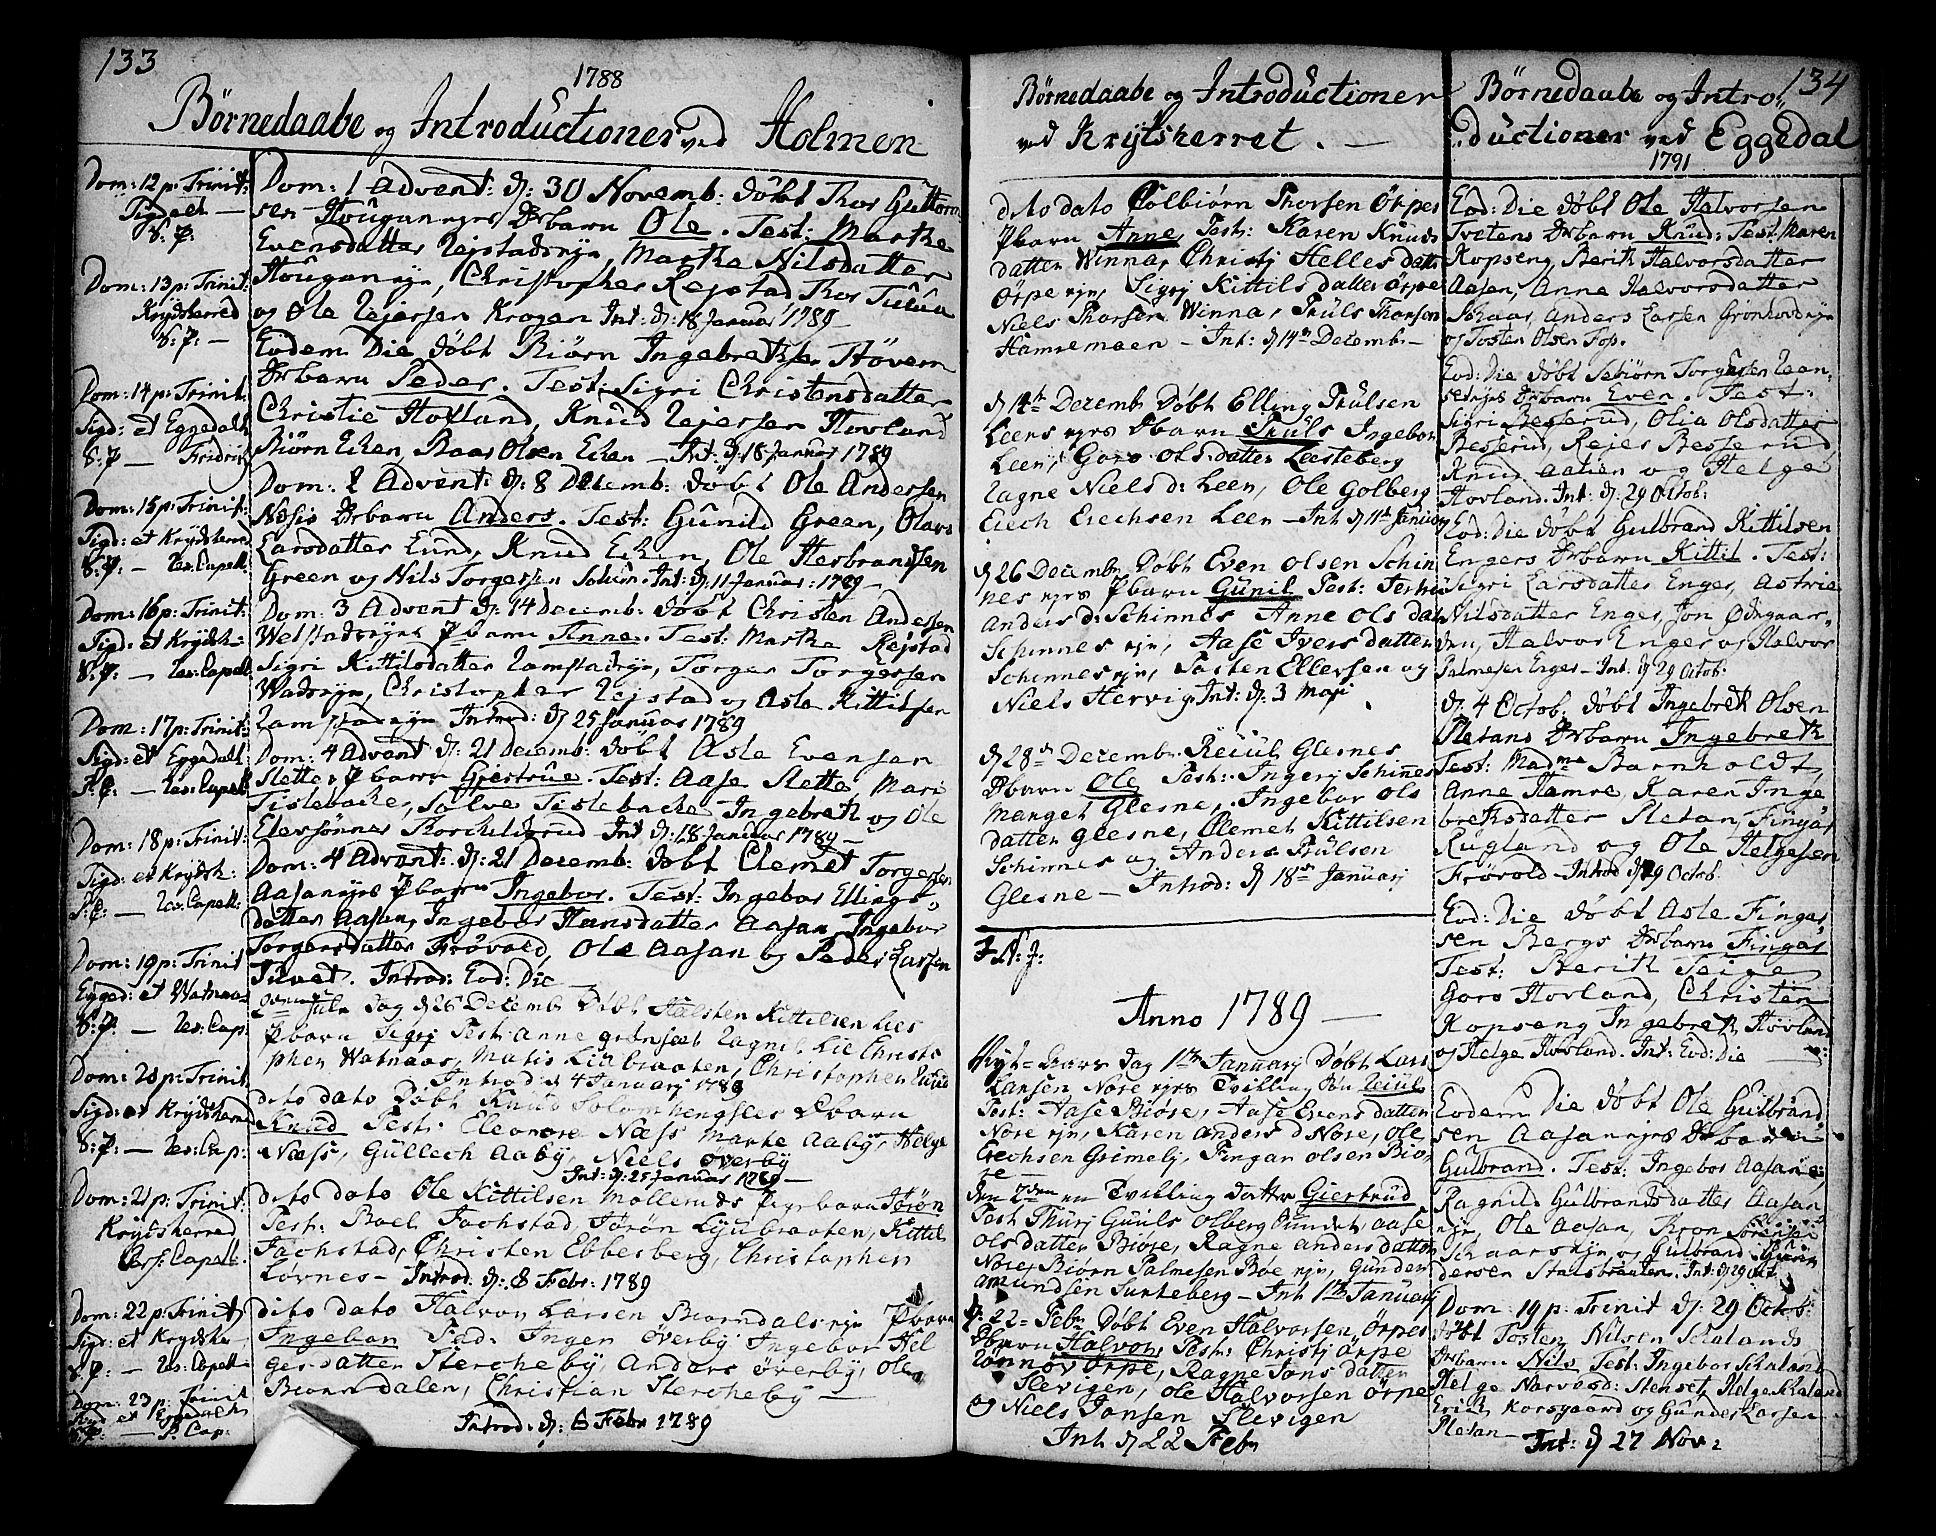 133
1788
Börnedaabe og Introductioner ved Holmen
Dom: 12 p: Trinit:
Sigdahl —
S: P:
Dom: 13 p: Trinit:
Krydsherred
S: P: —
Dom: 14 p: Trinit:
Sigd: et Eggedahl
S: P — Fridrich
Dom: 15 p: Trinit:
Sigd: et Krydsherred
S: P: — Res: Capell:
Dom: 16 p: Trinit:
Sigd: et Krydsh:
S: P: — Res: Capell
Dom: 17 p: Trinit:
Sigd: et Eggedahl
— Res: Capell
Dom: 18 p: Trinit:
Sigd: et Krydsh:
— Res: Capell:
Dom: 19 p: Trinit
Egged: et Watnaas
S: P: — Res: Cap:
Dom: 20 p: Trinit
Sigd: et Krydsherred
S: P: — Res: Cap:
Dom: 21 p: Trinit:
Krydsherred
Pers: Capell:
Dom: 22 p: Trinit
Sigd: et Krydsh
S: P: — Res: Capell
Dom: 23 p: Trinit
et Eggedahl
— P: Cap:
Dom: 1 Advent: d: 30 Novemb: döbt Thor Guttorm
sen Hougan ejes barn Ole. Test: Marthe
Evensdatter Rejstadejn, Marthe Nilsdatter
Houganejn, Christopher Rejstad, Thor
og Ole Rejersen Krogen Int: d: 18 Januar 1789
Eodem Die döbt Biörn Ingebrethsen Hövern
barn Peder. Test: Sigri Christensdatter
Christie Hovland, Knud Rejersen Hovland
Biörn Eken, Roar Olsen Eken — Int: d: 18 Januar 1789
Dom: 2 Advent: d: 8 Decemb: döbt Ole Andersen
barn Anders. Test: Gunild Green,
Larsdatter Lund, Knud Eken, Ole Herbrandsen
Green og Nils Torgersen Solum. Int: d: 11 Januar: 1789 —
Dom: 3 Advent d: 14 Decemb: döbt Christen Andersen
P barn Anne. Test: Marthe Rejstad
Sigri Kittilsdatter Ramstadejn, Torger Torgersen
Wadsejn, Christopher Rejstad og Asle Kittilsen
Ramstadejn Introd: d 25 Januar 1789
Dom: 4 Advent d: 21 Decemb: döbt Asle Evensen
Slette P barn Giertrue. Test: Aase Slette, Mari
Tislebacke, Salve Tislebacke, Ingebreth og Ole
Elevsönner Thorkildsrud — Int d: 18 Januar 1789 —
Dom: 4 Advent: d: 21 Decemb: döbt Clemet Torgersen
Aasanejes P barn Ingebor. Test: Ingebor Ellings
datter Aasan, Ingebor Hansdatter Aasan Ingebor
Torgersdatter Frövold, Ole Aasan og Peder Larsen
Tvet. Introd: Eod: Die —
Jule dag d 26 Decemb Döbt Halsten Kittilsen Lies
P barn Sigrj Test: Anne Grönset Ragnil Lie Christo
pher Watnaas, Matis Liebraaten, Christopher
Introd d 4 Januarj 1789
dito dato Döbt Knud Solomhengsles P barn
Knud Test: Eleonore Næss Marte Aaby, Helge
Næss, Gullech Aaby, Niels Överby
Int: d: 25 Januar 1789 —
dito dato Ole Kittilsen Mollerud P barn Jörön
Test: Boel Fachstad, Jörön Lyubraaten, Kittil
Fachstad, Christen Ebbesberg, Christopher
Lövnes — Introd: d: 8 Febr: 1789
dito dato Halvor Larsen Biörndalsejn P barn
Ingebor Fad: Inger Överby Ingebor Hel
gesdatter Stercheby, Anders Överby, Ole
Biörndalen, Christian Stercheby —
Introd: d: 6 Febr 1789
Börnedaabe og Introductioner
ved Krytsherret. —
dito dato Colbiörn Thorsen Örpes
P barn Anne, Test: Karen Knuds
datter Winnar Christj Helles datt
Örpe ejn, Sigrj Kittils datter Örpe
Niels Thorsen Winna, Truls Thorson
Hamremoen — Int: d 14de Decembr —
d 14de Decembr Döbt Elling Trulsen
Leens ejes P barn Truls Ingebor
Leen, Goro Ols datter Leesteberg
Ragne Niels d: Leen, Ole Golberg
Erech Erechsen Leen — Int d 11te Januar
d 26 Decembr Döbt Even Olsen Schin
nes ejes P barn Gunil Test:
Anders d: Schinnes Anne Ols dat
Schinnes ejn, Aase Ivers datter
Schinnes ejn, Tosten Ellevsen og
Niels Hervig Int: d: 3 Maji
d 28de Decembr. Reiul Glesnes
P barn Ole Test: Ingerj Schinnes
Marget Glesne, Ingebor Ols
datter Glesne, Clemet Kittilsen
Schinnes og Anders Trulsen
Glesne — Introd: d 18de Januarj
J. N: J:
Anno 1789 —
Nyt-Aars Dag 1te Januarj Döbt Lars
Larsen Nore ejes Tvilling Reiul
Test: Aase Biöre, Aase Evens datter
Nore ejn, Karen Anders d Nore, Ole
Erechsen Grimelj, Fingar Olsen Biö
re
den 2den en Tvilling datter Giertrud
Test Thurj Guuls Olberg Aase
Ols datter Biöre, Ragne Anders datter
Nore, Biörn Palmesen Boe ejn, Gunder
Amundsen Surteberg — Int 1te Januarj
d: 22 Febr Döbt Even Halvorsen Örpes
P barn Halvor, Test: Christj Örpe
Rönnov Örpe, Ragne Jons datter
Slevigen, Ole Halvorsen Örpe
og Niels Jonsen Slevigen
Int d 22 Febr
134
Börnedaabe og Intro
ductioner ved Eggedal
1791
Eod: Die döbt Ole Halvorsen
Tvetens barn Knud: Test: Karen
Kopseng, Berith Halvorsdatter
Aasen, Anne Halvorsdatter
Skaar, Anders Larsen Grönhovdejn
og Tosten Olsen
Eod: Die döbt Torgersen
barn Even. Test:
Sigri Besserud, Olia Olsdatter
Besserud, Rejer Besserud,
Knud og Helge
Hovland. Int: d: 29 Octob:
Eod: Die döbt Gulbrand Kittilsen
Engers barn Kittil. Test:
Sigri Larsdatter Enger, Astrie
Nilsdatter Enger, Jon Ödegaar
den, Halvor Enger og Halvor
Palmesen Enger — Int: d 29 Octob:
d: 4 Octob: döbt Ingebreth Olsen
Pletans barn Ingebreth
Test: Madme Barnholdt,
Anne Hamre, Karen Inge
brethsdatter Pletan, Fingar
Rugland og Ole Helgesen
Frövold — Introd d 29 Octob:
Eod: Die döbt Asle Fingar
sen Bergs barn Fingar
Test: Berith Teige
Goro Hovland, Christen
Kopseng Ingebreth Hovland
og Helge Hovland. Int: Eod: Die —
Eodem Die döbt Ole Gulbrand
sen Aasanejes barn
Gulbrand. Test: Ingebor Aasan
Ragnild Gulbrandsdatter Aasan
ejn, Ole Aasan, Sörensen
Skaarsejn og Gulbrand
dersen Stavsbraaten. Int: d 29 Oct
Dom: 19 p: Trinit d: 29 Octob:
döbt Tosten Nilsen Skalands
barn Nils Test: Ingebor Skaland
Helge Narverud: Stenset, Helge Skaland
Erich Korsgaard og Gunder Larsen
Pletan — Int: d 27 Nov: